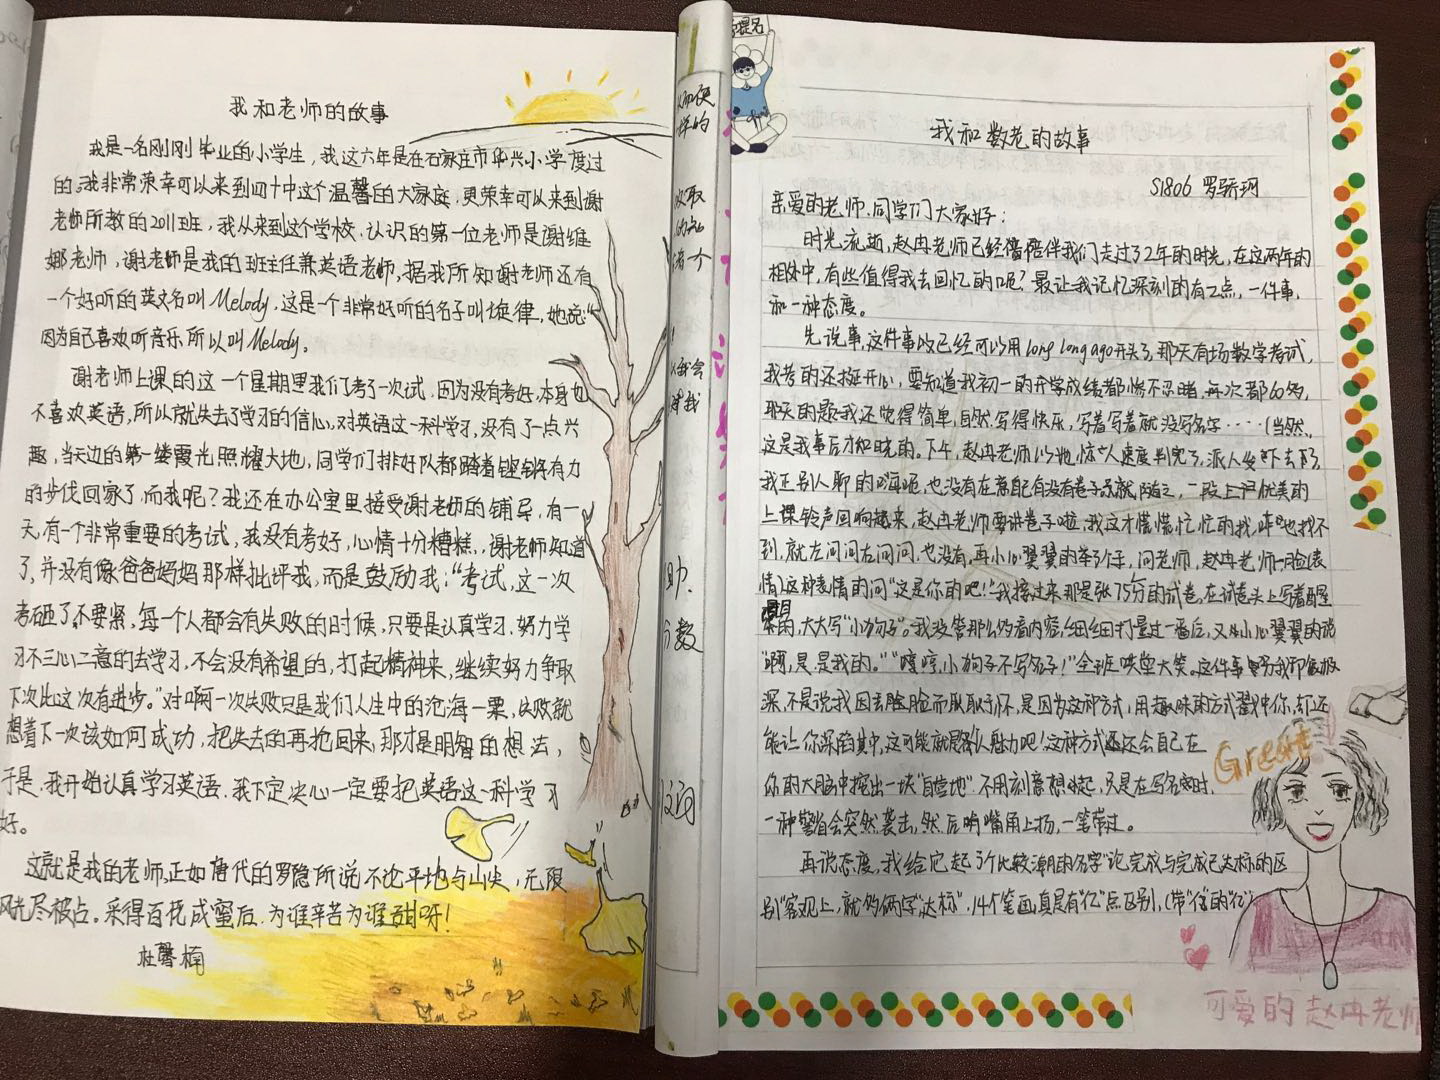 我和老师的故事
我是一名刚刚毕业的小学生，我这六年是在石家庄市华兴小学度过
的。我非常荣幸可以来到四十中这个温馨的大家庭，更荣幸可以来到谢
老师所教的2011班，我从来到这个学校，认识的第一位老师是谢维
娜老师，谢老师是我的班主任兼英语老师，据我所知谢老师还有
一个好听的英文名叫Melody，这是个非常好听的名子叫旋律，她说
因为自己喜欢听音乐，所以叫Melody。
谢老师上课的这一个星期里我们考了一次试，因为没有考好，本身也
不喜欢英语，所以就失去了学习的信心，对英语这一科学习，没有了一点兴
趣，当天边的第一缕霞光照耀大地，同学们排好队都踏着铿锵有力
的步伐回家了，而我呢？我还在办公室里接受谢老师的辅导，有一
天，有一个非常重要的考试，我没有考好，心情十分糟糕，谢老师知道
了，并没有像爸爸妈妈那样批评我，而是鼓励我：“考试，这一次
考砸了，不要紧，每一个人都会有失败的时候，只要是认真学习，努力学
习不三心二意的去学习，不会没有希望的，打起精神来，继续努力争取
下次比这次有进步。”对啊一次失败只是我们人生中的沧海一粟，失败就
想着下一次该如何成功，把失去的再抢回来，那才是明智的想法，
于是，我开始认真学习英语，我下定决心一定要把英语这一科学习
好。
这就是我的老师，正如唐代的罗隐所说不论平地与山尖，无限
风光尽被占。采得百花成蜜后，为谁辛苦为谁甜呀！
杜馨楠
的
取
个
我会
助.
分数
提名
我和数老的故事
S1806 罗骄珂
亲爱的老师、同学们大家好：
时光流逝，赵冉老师已经陪伴我们走过了2年的时光，在这两年的
相处中，有些值得我去回忆的呢？最让我记忆深刻的有2点，一件事，
和一种态度。
先说事，这件事故已经可以用long long ago开头了，那天有场数学考试，
我考的还挺开心，要知道我初一的开学成绩都惨不忍睹，每次都60多，
那天的题我还觉得简单，自然写得快乐，写着写着就没写名字····（当然，
这是我事后才知晓的。下午，赵冉老师以她惊人速度判完了，派人发下去了
我正别人聊的嗨呢，也没有在意自己有没有卷子，一段上课优美的
上课铃声回响起来，赵冉老师要讲卷子啦，我这才慌慌忙忙的找，咋也找不
到，就左问问右问问，也没有，再小心翼翼的举了个手，问老师，赵冉老师一脸(表
情)这种表情的问“这是你的吧！”我接过来，那是张75分的试卷，在试卷头上写着醒
目的，大大写“小狗子”。我没管那么多看内容，细细打量过一番后，又小心翼翼的说
“啊，是是我的。”“哼哼，小狗子不写名字！”全班哄堂大笑。这件事
深，不是说我因丢脸而耿耿于怀，是因为这种方式，用趣味的方式戳中你，却还
能让你深陷其中，这可能就是人魅力吧！这种方式还会自己在
你的大脑中挖出一块“自营地”不用刻意想起，只是在写名字时，
一种警省会突然袭击，然后响嘴角上扬，一笔带过。
再说态度，我给它起了个比较潮的名字“论完成与完成已达标的区
别”客观上，就多俩字“达标”，14个笔画真是有“亿”点区别，（带“亿”的“亿”）
Great
可爱的赵冉老师